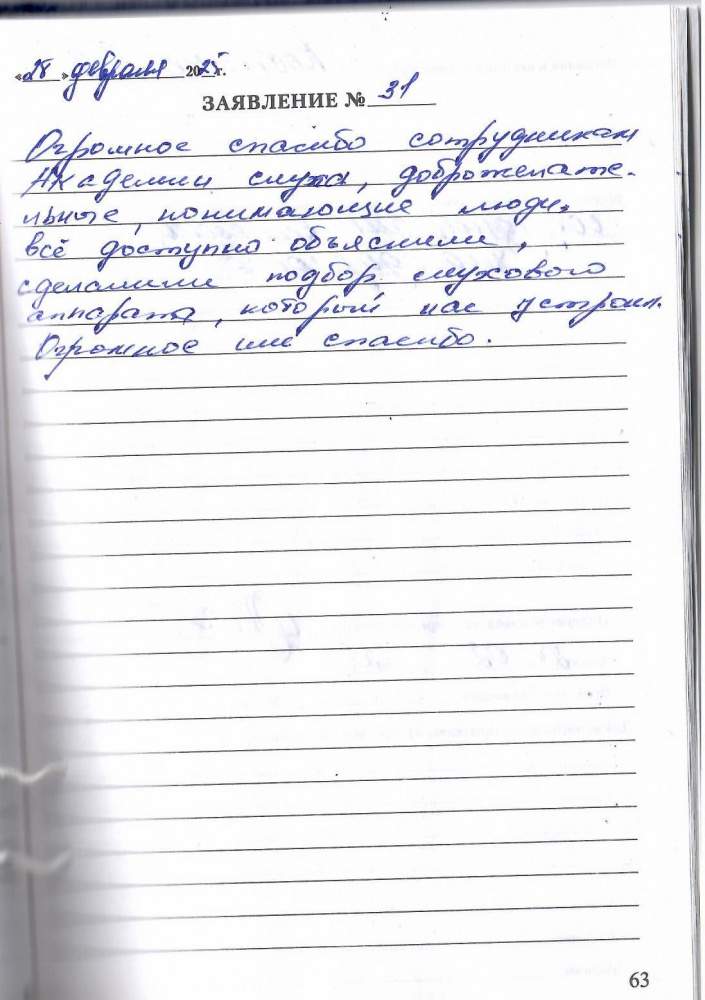 «28» февраля 2025 г.
ЗАЯВЛЕНИЕ № 31
Огромное спасибо сотрудникам
Академии слуха, доброжелате-
льные, понимающие люди,
всё доступно объяснили,
сделали подбор слухового
аппарата, который нас устроил.
Огромное им спасибо.
63